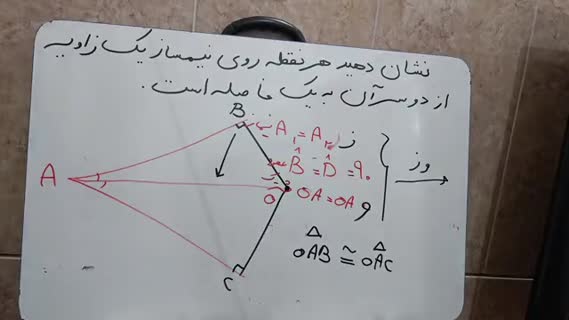 نشان دهید هر نقطه روی نیمساز یک زاویه
از دو سر آن به یک فاصله است.
B
ز A₁ = A₂
B̂ = D̂ = 90
و OA = OA
وز
A
O
C
OAB ≅ OAC